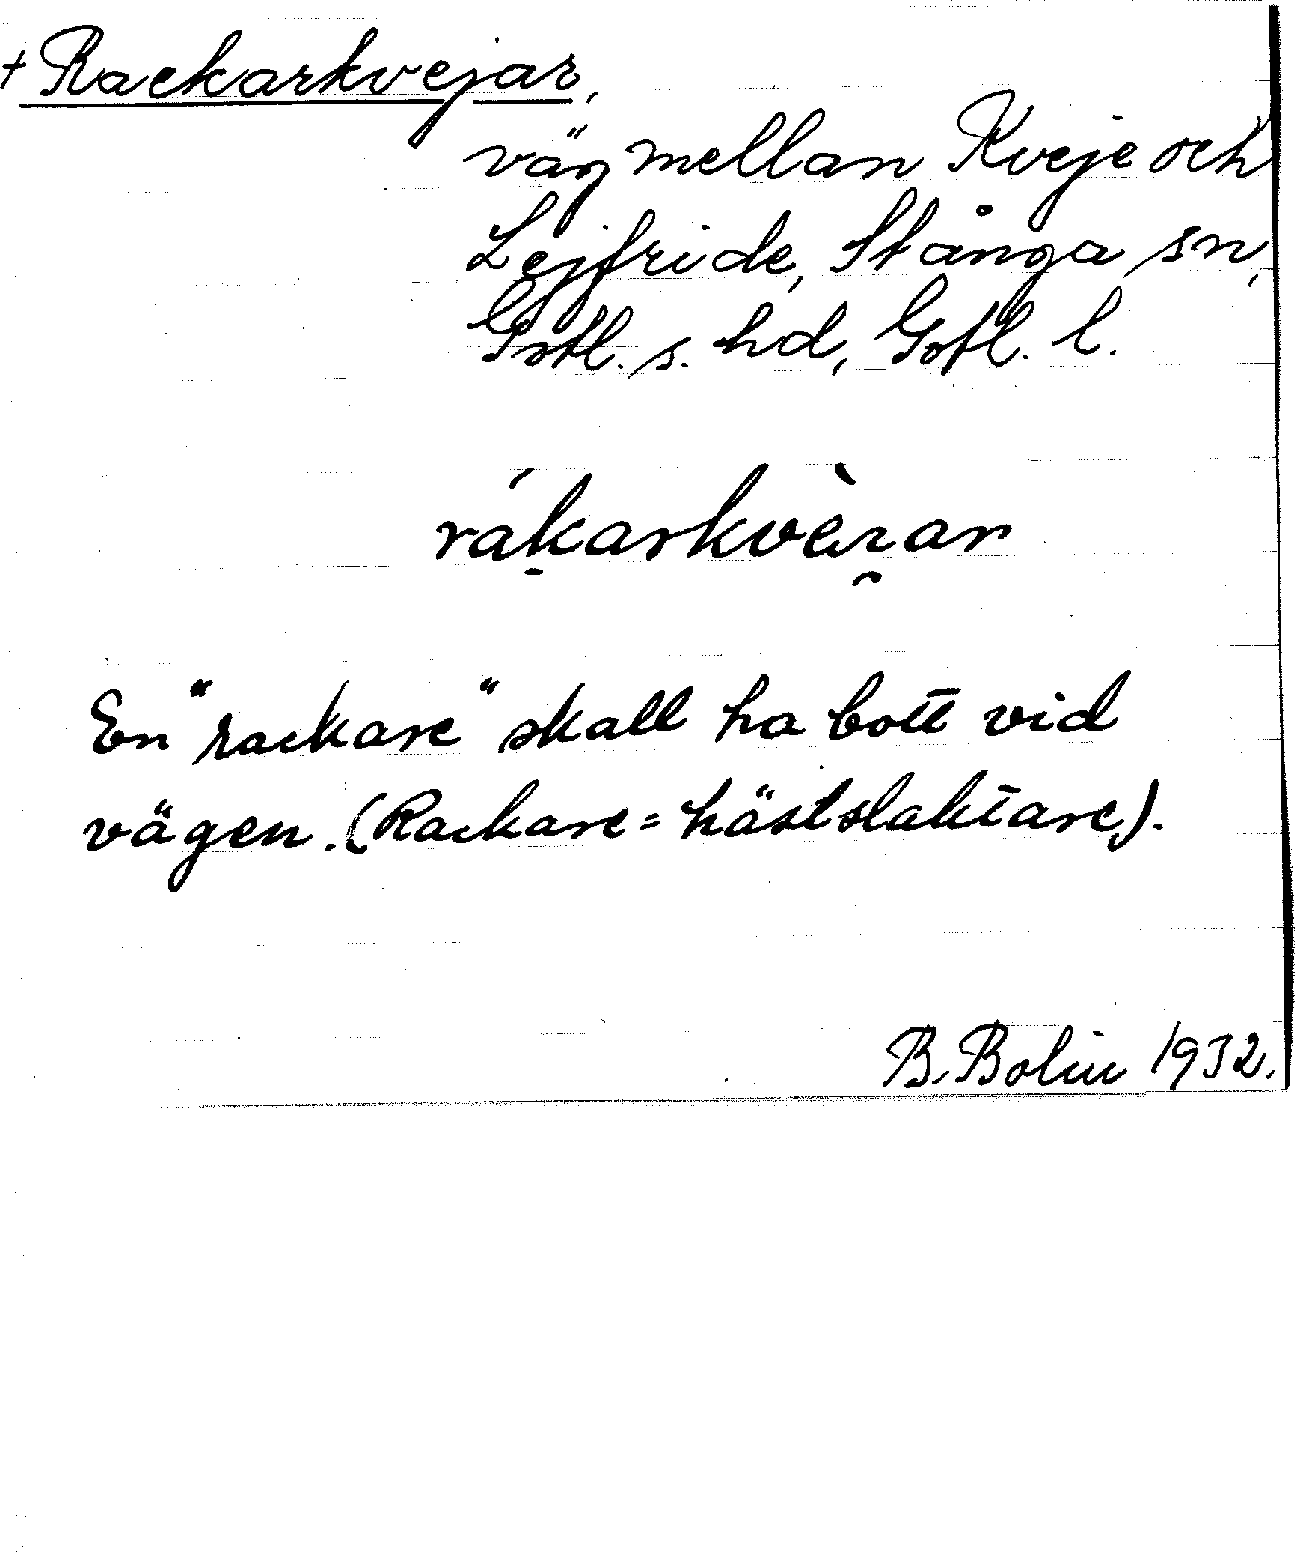 + Rackarkvejar,
väg mellan Kveje och
Lejfride, Stånga sn,
Gotl. s. hd, Gotl. l.
rákarkvèʒar
En "rackare" skall ha bott vid
vägen. (Rackare = hästslaktare).
B. Bolin 1932.